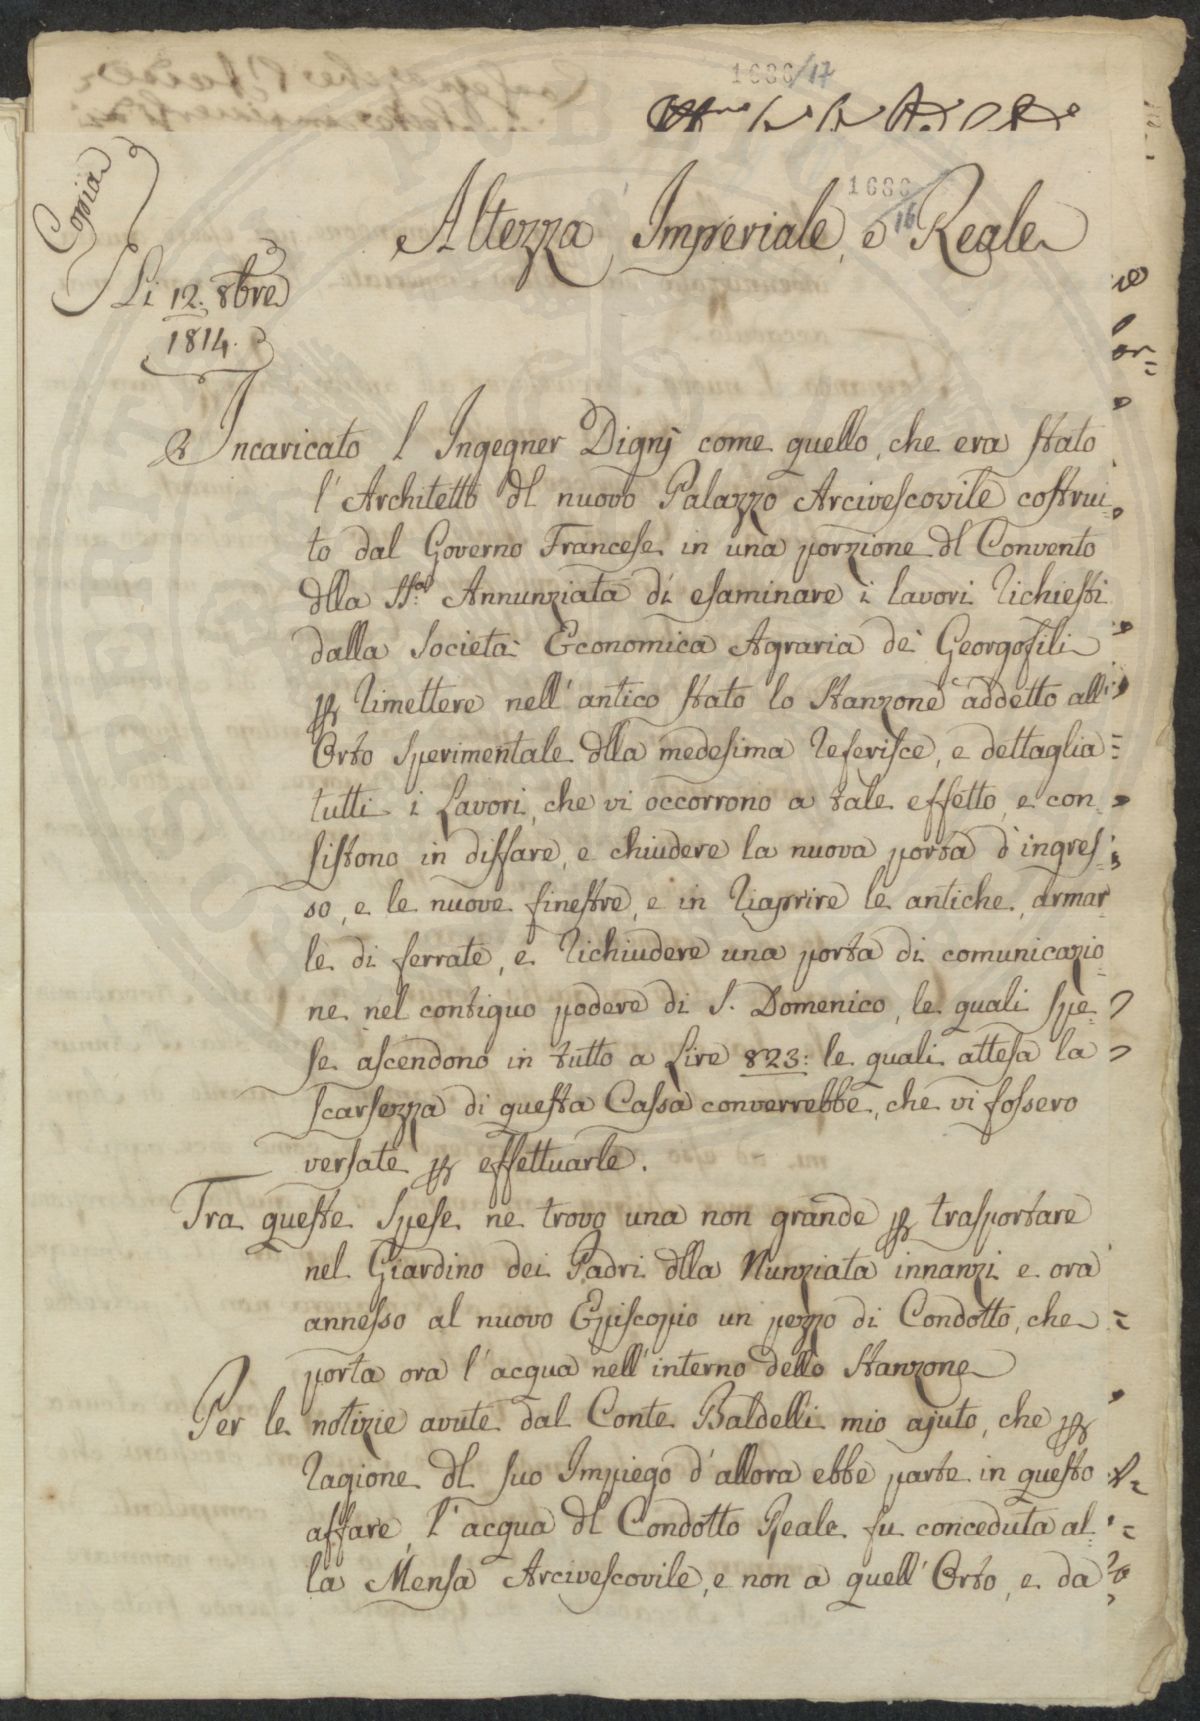 1686/17
Copia
1686/16
Altezza Imperiale, e Reale
Li 12. 8bre
1814.
Incaricato l Ingegner Digny come quello, che era stato
l'Architetto dl nuovo Palazzo Arcivescovile costrui=
to dal Governo Francese in una porzione dl Convento
dlla SS.a Annunziata di esaminare i lavori richiesti
dalla Società Economica Agraria de' Georgofili
p rimettere nell'antico stato lo Stanzone addetto all'
Orto Sperimentale dlla medesima referisce, e dettaglia
tutti i Lavori, che vi occorrono a tale effetto, e con
sistono in disfare, e chiudere la nuova porta d'ingres=
so, e le nuove finestre, e in riaprire le antiche, armar
le di ferrate, e richiudere una porta di comunicazio=
ne nel contiguo podere di S. Domenico, le quali spe=
se ascendono in tutto a Lire 823: le quali attesa la
scarsezza di questa Cassa converrebbe, che vi fossero
versate p effettuarle.
Tra queste Spese ne trovo una non grande p trasportare
nel Giardino dei Padri dlla Nunziata innanzi e ora
annesso al nuovo Episcopio un pezzo di Condotto, che
porta ora l'acqua nell'interno dello Stanzone
Per le notizie avute dal Conte Baldelli mio ajuto, che p
ragione dl suo Impiego d'allora ebbe parte in questo
affare, l'acqua dl Condotto Reale fu conceduta al=
la Mensa Arcivescovile, e non a quell'Orto, e da